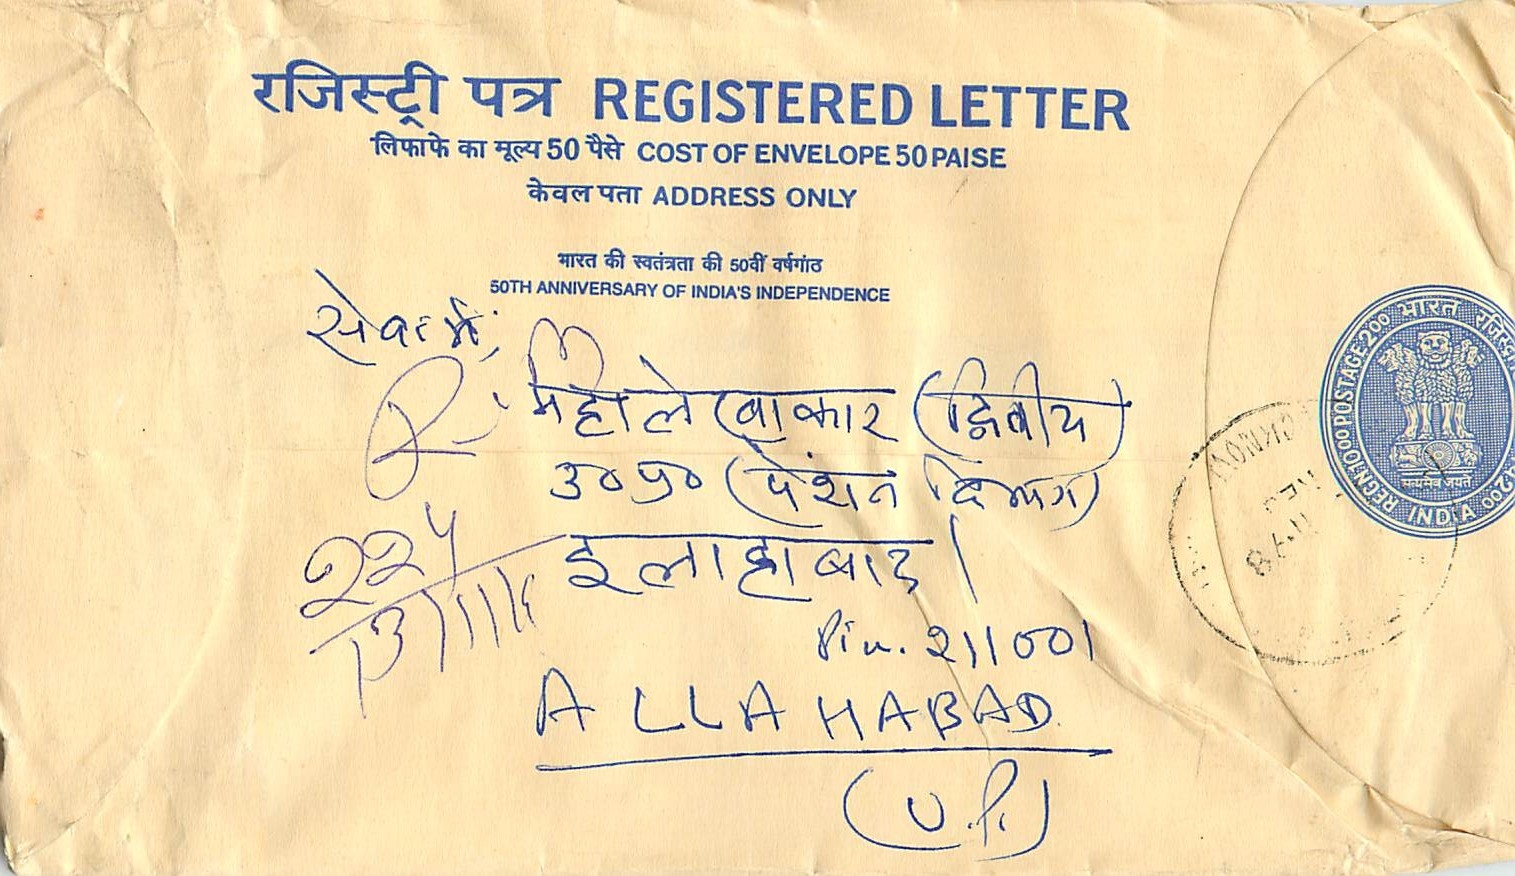 रजिस्ट्री पत्र REGISTERED LETTER
लिफाफे का मूल्य 50 पैसे COST OF ENVELOPE 50 PAISE
केवल पता ADDRESS ONLY
भारत की स्वतंत्रता की 50वीं वर्षगांठ
50TH ANNIVERSARY OF INDIA'S INDEPENDENCE
सेवा में,
महालेखाकार (द्वितीय)
उ०प्र० (पेंशन विभाग)
इलाहाबाद।
Pin. 211001
ALLAHABAD
(U.P.)
224
REGN 1000 POSTAGE 200 भारत
सत्यमेव जयते
INDIA
LUCKNOW